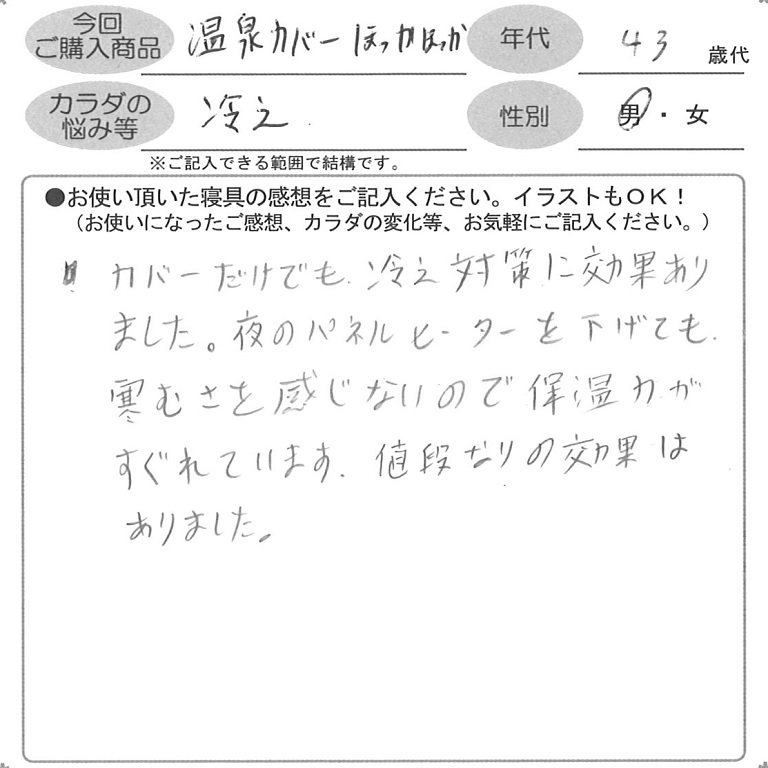 今回
ご購入商品
温泉カバーほっかほっか
年代
43
歳代
カラダの
悩み等
冷え
性別
男・女
※ご記入できる範囲で結構です。
●お使い頂いた寝具の感想をご記入ください。イラストもOK！
（お使いになったご感想、カラダの変化等、お気軽にご記入ください。）
カバーだけでも、冷え対策に効果あり
ました。夜のパネルヒーターを下げても、
寒むさを感じないので保温力が
すぐれています。値段なりの効果は
ありました。